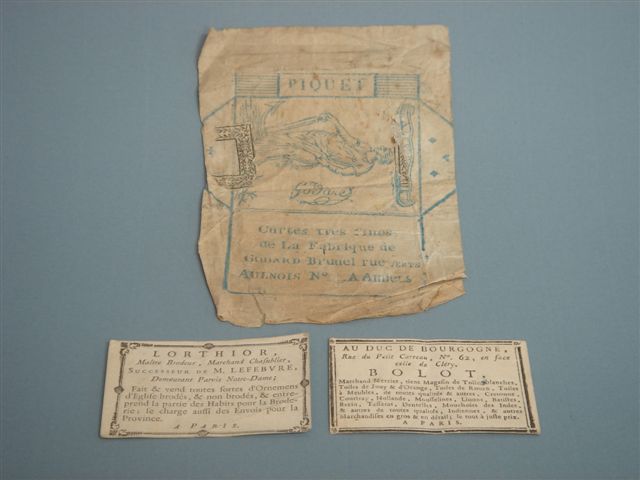 PIQUET
Godard
Cartes tres fines
de La Fabrique de
GODARD Brunel rue
AULNOIS No. A Amiens
LORTHIOR,
Maître Brodeur, Marchand Chasublier,
SUCCESSEUR DE M. LEFEBVRE,
Demeurant Parvis Notre-Dame;
Fait & vend toutes sortes d'Ornemens
d'Eglise brodés, & non brodés, & entre-
prend la partie des Habits pour la Brode-
rie; se charge aussi des Envois pour la
Province.
A PARIS.
AU DUC DE BOURGOGNE,
Rue du Petit Carreau, No. 62, en face
celle de Cléry,
BOLOT,
Marchand Mercier, tient Magasin de Toiles blanches,
Toiles de Jouy & d'Orange, Toiles de Rouen, Toiles
à Meubles, de toutes qualités & autres, Cretonne,
Courtray, Hollande, Mousselines, Linons, Batistes,
Basin, Taffetas, Dentelles, Mouchoirs des Indes,
& autres de toutes qualités, Indiennes, & autres
Marchandises en gros & en détail; le tout à juste prix.
A PARIS.